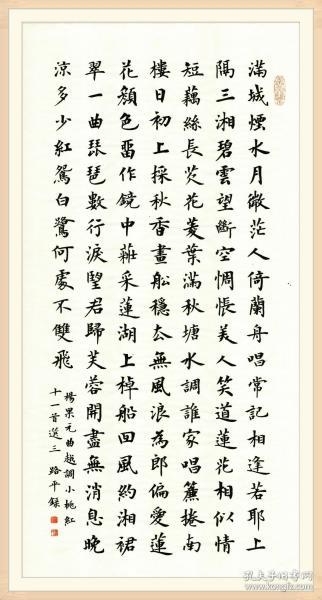 滿城煙水月微茫人倚蘭舟唱常記相逢若耶上
隔三湘碧雲望斷空惆悵美人笑道蓮花相似情
短藕絲長芡花菱葉滿秋塘水調誰家唱簾捲南
樓日初上採秋香畫舩穩去無風浪為郎偏愛蓮
花顏色畱作鏡中粧采蓮湖上棹船回風約湘裙
翠一曲琵琶數行淚望君歸芙蓉開盡無消息晚
涼多少紅鴛白鷺何處不雙飛
楊果元曲越調小桃紅
十一首選三路平錄
孔夫子旧书网